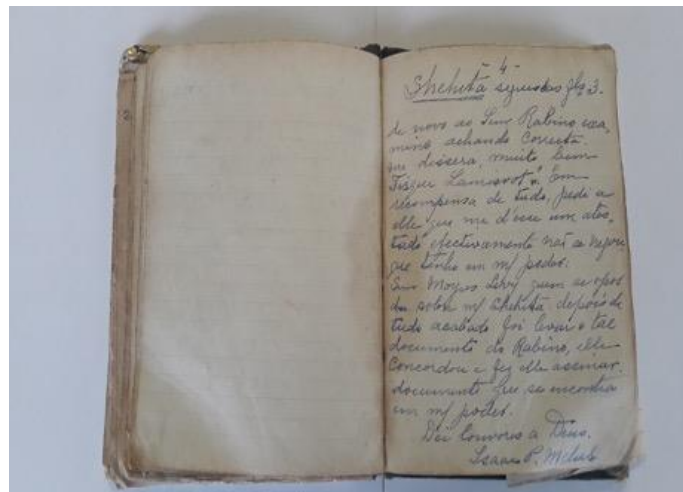 - 4 -
Shehitá segundas fls 3.
de novo ao Senr Rabino exa,
mino achando correcta.
me dissera, muito bem
Tisqué Lamisvot". Em
recompensa de tudo, pedi a
elle que me désse um ates,
tado efectivamente não se negou
que tenho em m/ poder.
Snr Moyses Levy quem se opos
du sobre m/ Shehitá depois de
tudo acabado foi levar o tal
documento do Rabino, elle
Concordou e fez elle assinar.
documento que se encontra
em m/ poder.
Dei louvores a Deus.
Isaac P. Melul